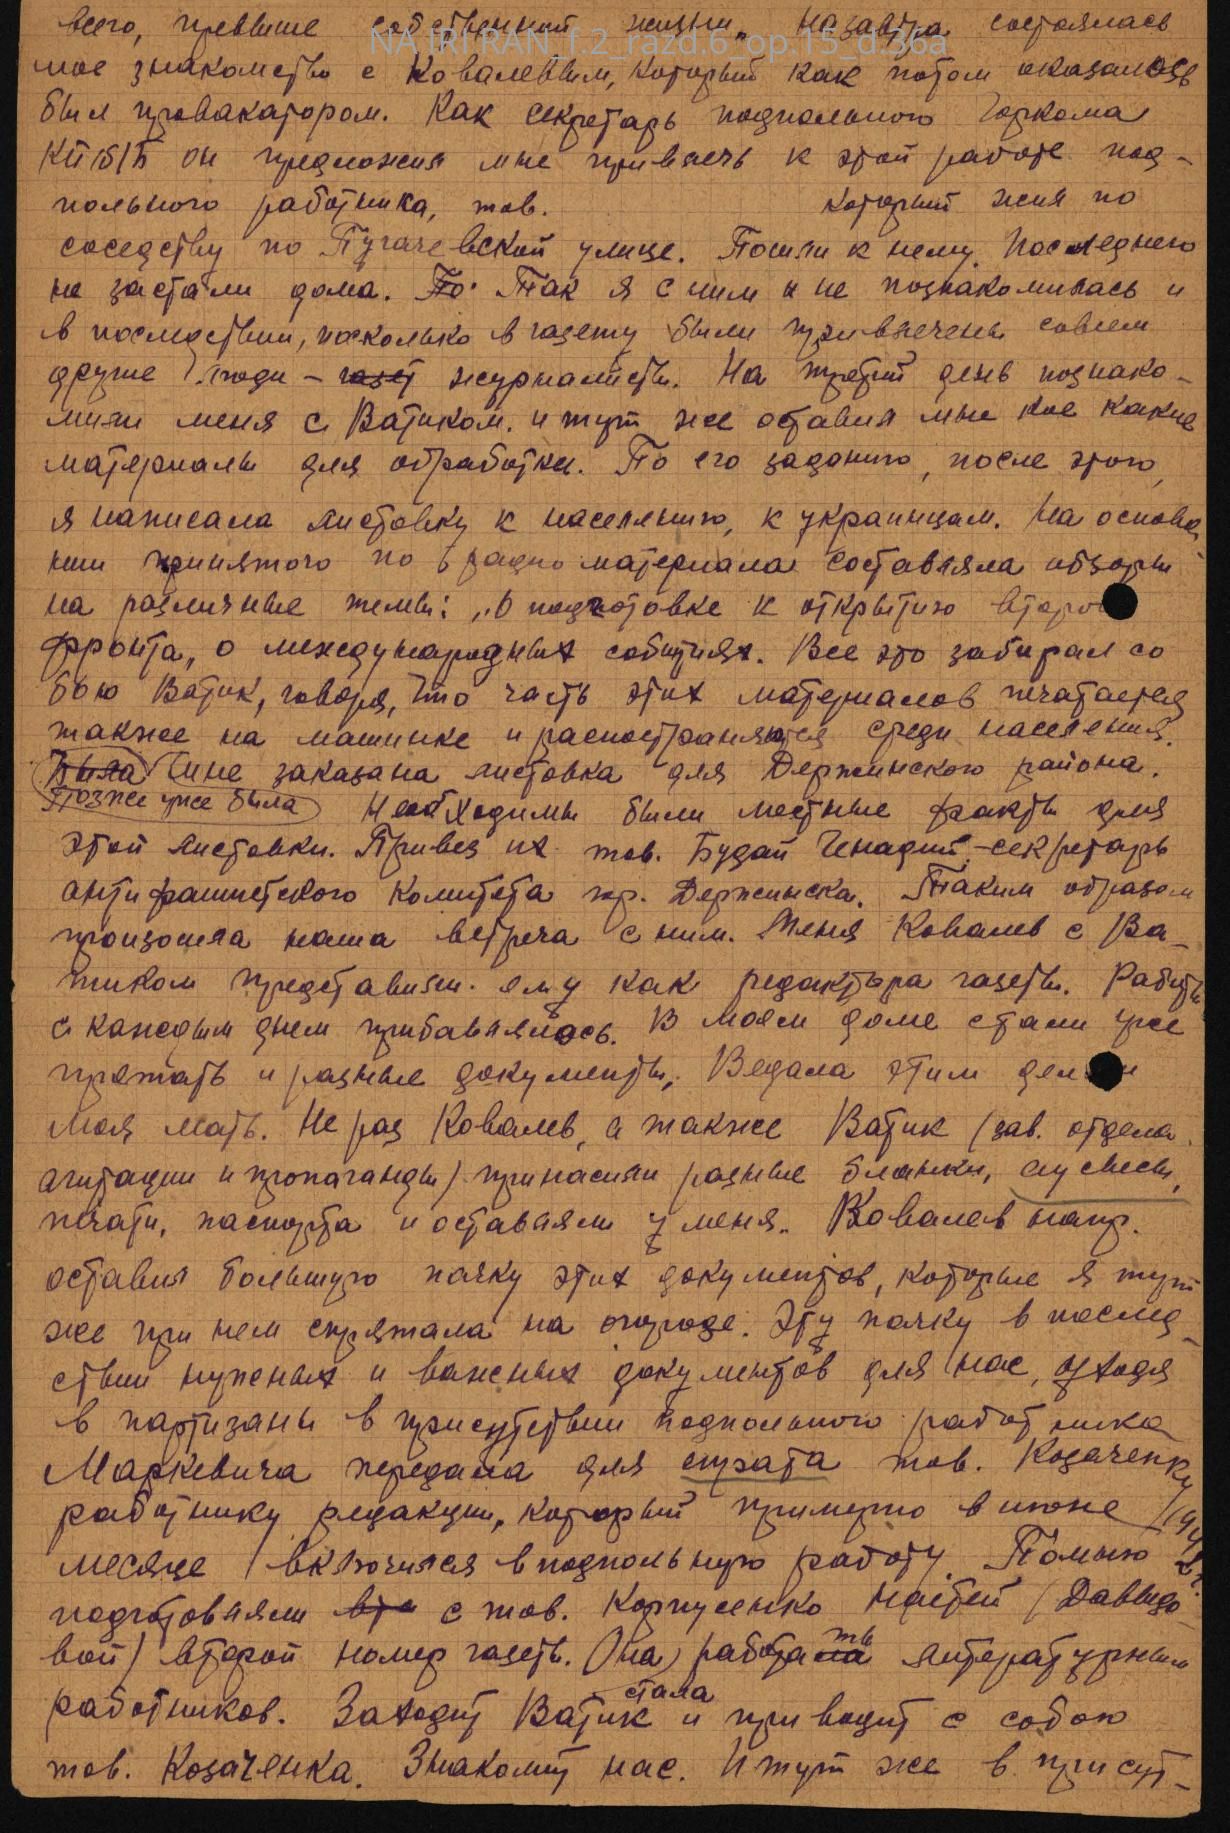 всего, превыше собственной жизни„. Назавтра состоялась
NA IRI RAN_f.2_razd.6_op.15_d.36a
мое знакомство с Ковалевым, который как потом оказалось
был провакатором. Как секретарь подпольного Горкома
КП/б/Б он предложил мне привлечь к этой работе под-
польного работника, тов. который жил по
соседству по Пугачевской улице. Пошли к нему. Последнего
не застали дома. По Так я с ним и не познакомилась и
в последствии, поскольку в газету были привлечены совсем
другие люди – газет журналисты. На третий день познако-
мили меня с Ватиком. и тут же оставил мне кое какие
материалы для обработки. По его заданию, после этого,
я написала листовку к населению, к украинцам. На основа
нии принятого по радио материала составляла обзоры
на различные темы: „О подготовке к открытию второго
фронта, о международных событиях. Все это забирал со
бою Ватик, говоря, что часть этих материалов печатается
также на машинке и распостраняются среди населения.
Была мне заказана листовка для Держинского района.
Позже уже была Необходимы были местные факты для
этой листовки. Привез их тов. Будай Генадий,–секретарь
антифашистского Комитета гор. Держинска. Таким образом
произошла наша встреча с ним. Меня Ковалев с Ва-
тиком представили ему как редактора газеты. Работы
с каждым днем прибавлялось. В моем доме стали уже
прятать и разные документы. Ведала этим делом
моя мать. Не раз Ковалев, а также Ватик /зав. отдела
агитации и пропаганды/ приносили разные бланки, аусвесы,
печати, паспорта и оставляли у меня. Ковалев напр.
оставил большую пачку этих документов, которые я тут
же при нем спрятала на огороде. Эту пачку в послед-
ствии нужных и важных документов для нас, уходя
в партизаны в присутствии подпольного работника
Маркевича передала для спрата тов. Козаченку
работнику редакции, который примерно в июне /1942 г.
месяце / включился в подпольную работу. Помню
подготовляли вто с тов. Корпусенко Настей /Давыдо-
вой/ второй номер газеты. Она работала ть литературным
работников. Заходит Ватик стала и приводит с собою
тов. Козаченка. Знакомит нас. И тут же в присут-